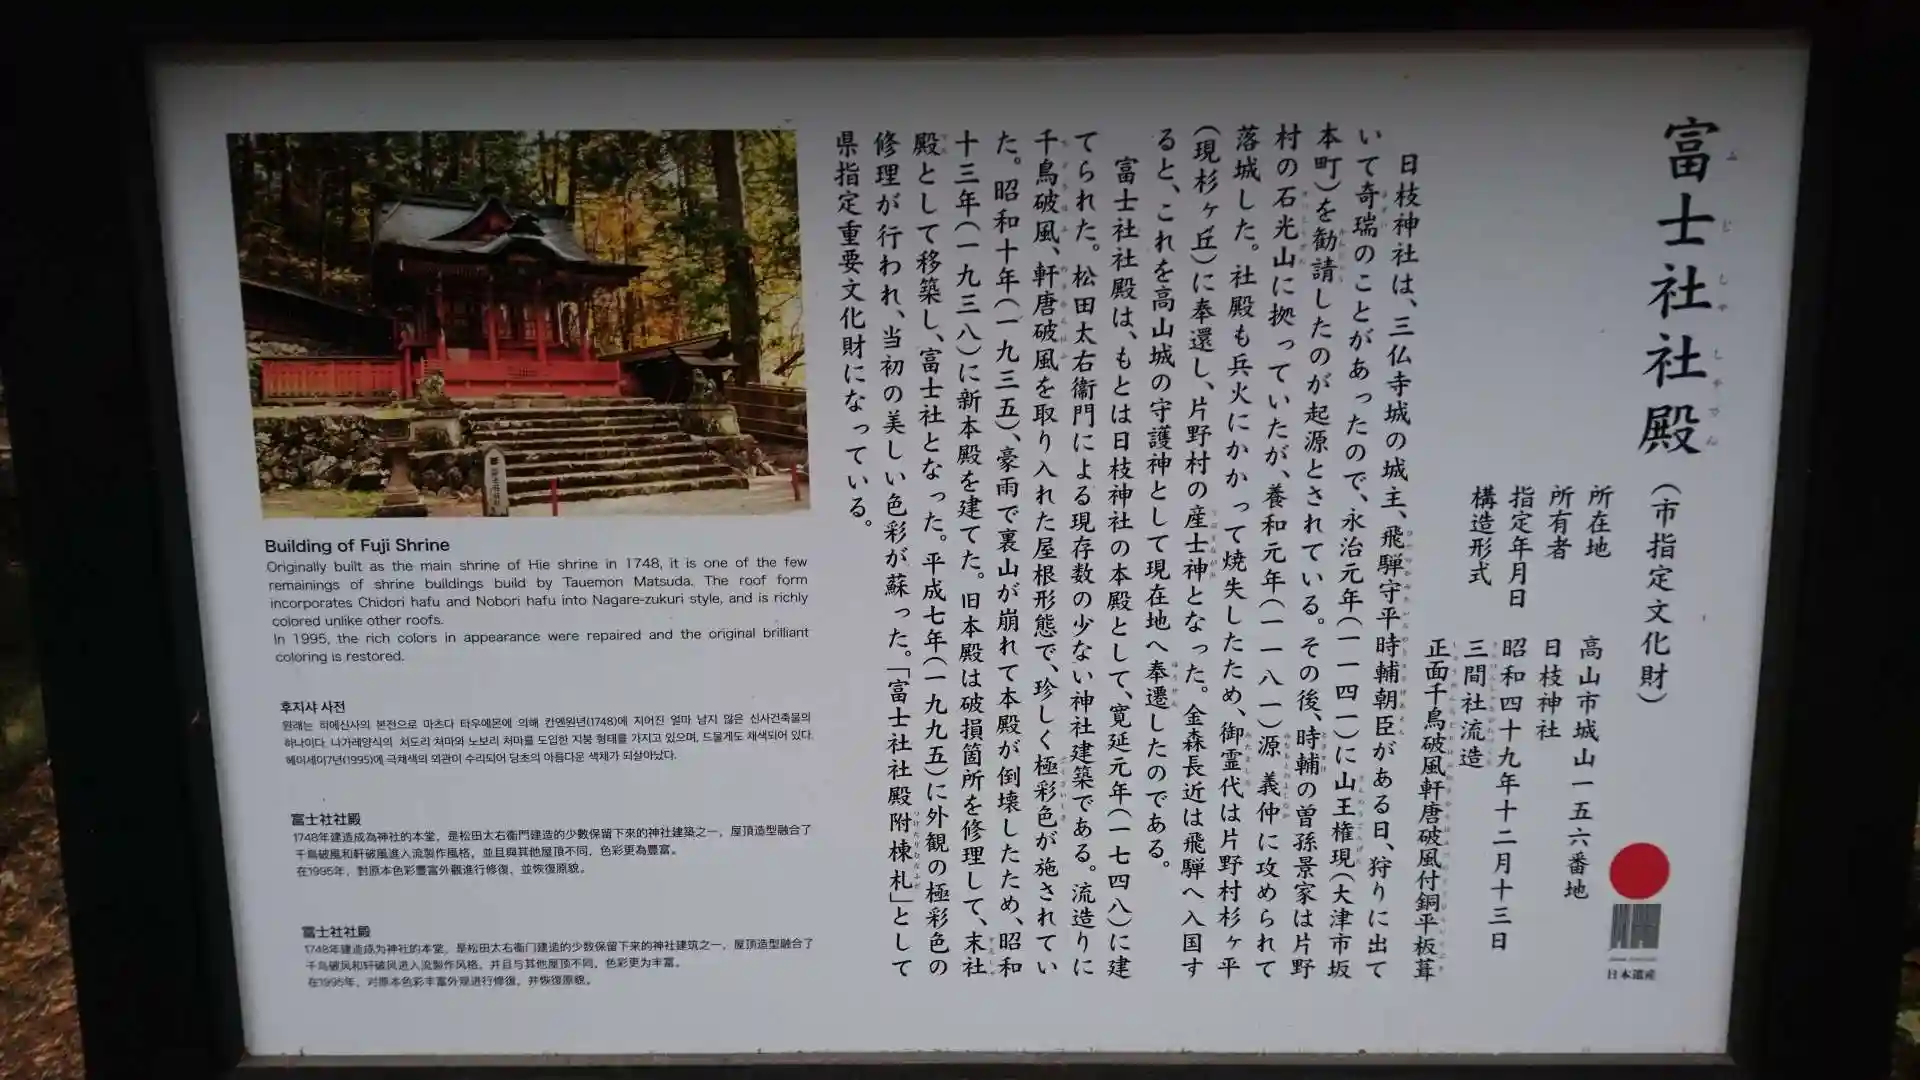 富士社社殿(市指定文化財)
所在地 高山市城山一五六番地
所有者 日枝神社
指定年月日 昭和四十九年十二月十三日
構造形式 三間社流造
正面千鳥破風軒唐破風付銅平板葺
日枝神社は、三仏寺城の城主、飛騨守平時輔朝臣がある日、狩りに出て
いて奇瑞のことがあったので、永治元年(一一四一)に山王権現(大津市坂
本町)を勧請したのが起源とされている。その後、時輔の曽孫景家は片野
村の石光山に拠っていたが、養和元年(一一八一)源義仲に攻められて
落城した。社殿も兵火にかかって焼失したため、御霊代は片野村杉ヶ平
(現杉ヶ丘)に奉還し、片野村の産土神となった。金森長近は飛騨へ入国す
ると、これを高山城の守護神として現在地へ奉遷したのである。
富士社社殿は、もとは日枝神社の本殿として、寛延元年(一七四八)に建
てられた。松田太右衞門による現存数の少ない神社建築である。流造りに
千鳥破風、軒唐破風を取り入れた屋根形態で、珍しく極彩色が施されてい
た。昭和十年(一九三五)、豪雨で裏山が崩れて本殿が倒壊したため、昭和
十三年(一九三八)に新本殿を建てた。旧本殿は破損箇所を修理して、末社
殿として移築し、富士社となった。平成七年(一九九五)に外観の極彩色の
修理が行われ、当初の美しい色彩が蘇った。「富士社社殿附棟札」として
県指定重要文化財になっている。
日本遺産
Building of Fuji Shrine
Originally built as the main shrine of Hie shrine in 1748, it is one of the few
remainings of shrine buildings build by Tauemon Matsuda. The roof form
incorporates Chidori hafu and Nobori hafu into Nagare-zukuri style, and is richly
colored unlike other roofs.
In 1995, the rich colors in appearance were repaired and the original brilliant
coloring is restored.
후지샤 사전
원래는 히에신사의 본전으로 마츠다 타우에몬에 의해 칸엔원년(1748)에 지어진 얼마 남지 않은 신사건축물의
하나이다. 나가레양식의 치도리 처마와 노보리 처마를 도입한 지붕 형태를 가지고 있으며, 드물게도 채색되어 있다.
헤이세이7년(1995)에 극채색의 외관이 수리되어 당초의 아름다운 색채가 되살아났다.
富士社社殿
1748年建造成為神社的本堂，是松田太右衞門建造的少數保留下來的神社建築之一，屋頂造型融合了
千鳥破風和軒破風進入流製作風格，並且與其他屋頂不同，色彩更為豐富。
在1995年，對原本色彩豐富外觀進行修復，並恢復原貌。
富士社社殿
1748年建造成为神社的本堂，是松田太右衞门建造的少数保留下来的神社建筑之一，屋顶造型融合了
千鸟破风和轩破风进入流製作风格，并且与其他屋顶不同，色彩更为丰富。
在1995年，对原本色彩丰富外观进行修復，并恢復原貌。